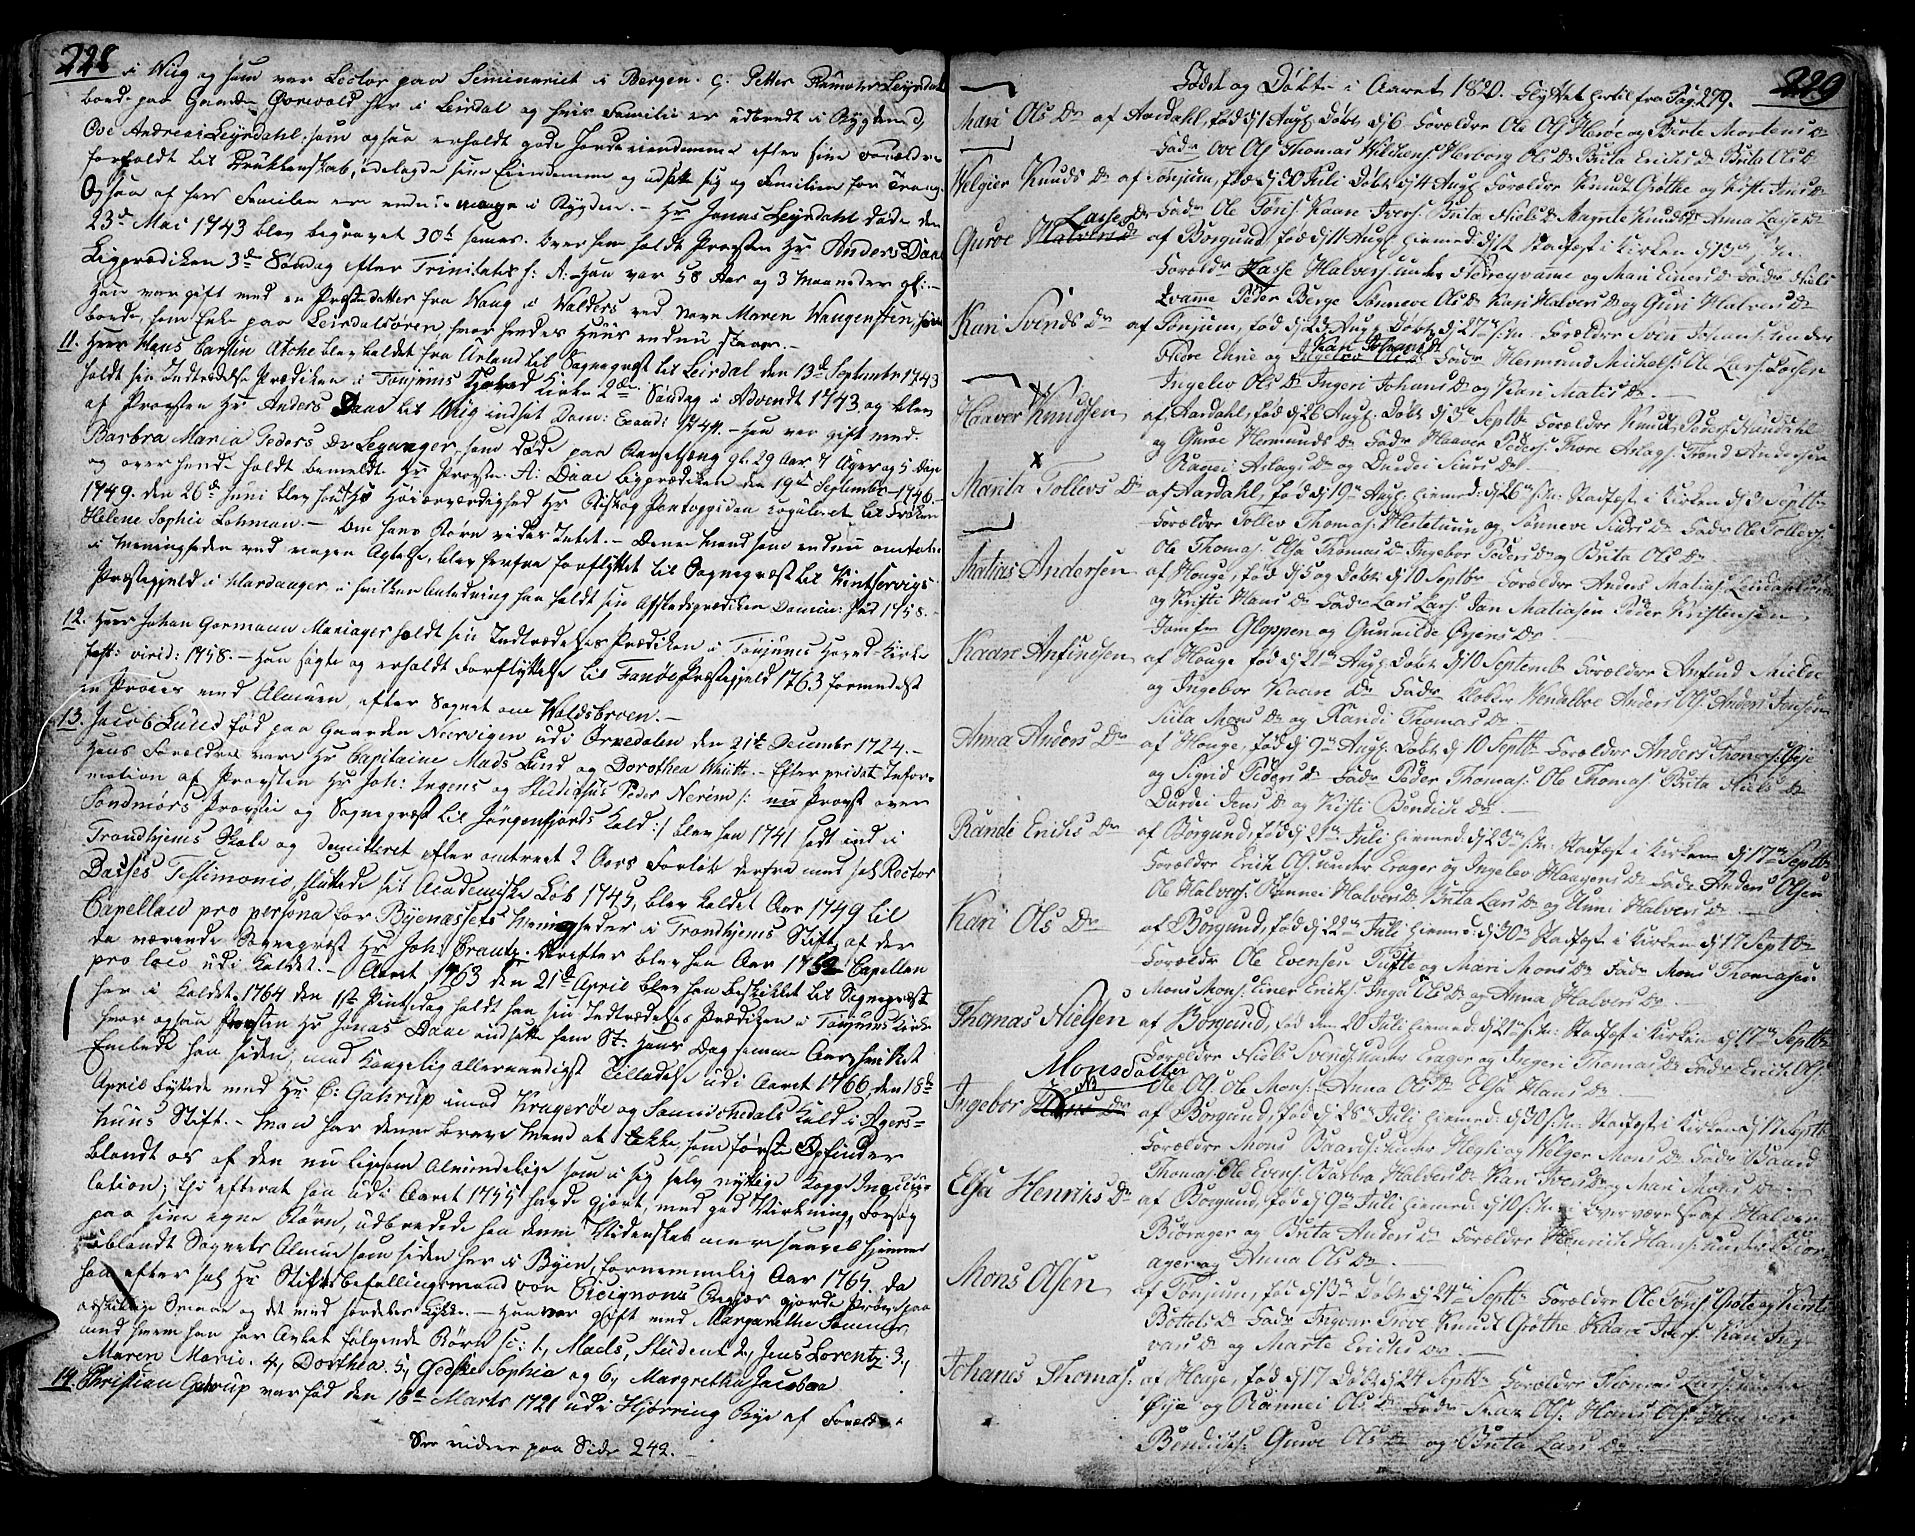 228
i Wiig og som var Lector paa Seminariet i Bergen. C; Petter
boede paa Gaarden her i Leirdal og hvis Familie er udbredt i Bygden. D,
Ove Andreas Leyrdahl, som ogsaa erholdt gode efter sine Forældre
forfaldt til Drukkenskab, ødelagde sine Eiendomme og udsatte sig og Familien for Trang
Ogsaa af hans Familie ere endnu mange i Bygden. – Hr Jonas Leyrdahl døde den
23de Mai 1743 blev begravet 30te samme. Over ham holdt Provsten Hr Anders Daae
Ligprædiken 3de Søndag efter Trinitatis s: A: Han var 58 Aar og 3 Maaneder gl: –
Han var gift med en Præstedatter fra Wang i Walders ved Navn Maren Wangensten, som
boede, som Enke paa Leirdalsøren, hvor hendes Huus endnu staaer. –
11. Herr Hans Carsten Atche blev kaldet fra Urland til Sognepræst til Leirdal den 13de Septembr 1743
holdt sin Indtrædelse Prædiken i Tonjums Hoved Kirke 2den Søndag i Advendt 1743 og blev
af Provsten Hr Anders Daae til Wiig indsat Dom: Exaudi 1744. – Han var gift med
Barbra Maria Peders Dr Leganger, som døde paa Barselseng gl: 29 Aar 7 Uger og 5 Dage
og over hende holdt bemeldt Hr Provsten A: Daae Ligprædiken den 19de September 1746 –
1749. den 26de Juni blev han af Hs Høiærværdighed Hr Biskop Pontoppidan copuleret til Frøken
Helene Sophie Lohman. – Om hans Børn vides Intet. – Denne Mand som endnu omtales
i Meningheden ved megen Agtelse, blev herfra forflyttet til Sognepræst til Kintservigs
Præstegjeld i Hardanger, i hvilken Anledning han holdt sin Afskedsprædiken Domin: 1758. –
12. Herr Johan Gormann Mariager holdt sin Indtrædelses Prædiken i Tonjums Hoved-Kirke
fest: virid: 1758. – Han søgte og erholdt Forflyttelse til Fanøe Præstegjeld 1763 formedelst
en Proces med Almuen efter Sagnet om Woldsbroen. –
13. Jacob Lund fød paa Gaarden Neervigen udi Ørkedalen den 21de Decembr 1724. –
Hans Forældre vare Hr Capitaine Mads Lund og Dorothea Wiitte. – Efter privat Infor-
mation af Provsten Hr Joh: Ingens og Studiosus Peder Nerem /: nu Provst over
Søndmørs Provstie og Sognepræst til Jørgenfjords Kald:/ blev han 1741 sadt ind i
Trondhjems Skole og Demitteret efter omtrent 2 Aars Forløb derfra med sal Rector
Dasses Testimonio, sluttede sit Academiske Løb 1745, blev kaldet Aar 1749 til
Capellan pro persona for Byenæssets Meningheder i Trondhjems Stift, af der
da værende Sognepræst Hr Joh: Brantz. Derefter blev han Aar 1752 Capellan
pro loco udi Kaldet. – Aaret 1763 den 21de April blev han beskikket til Sognepræst
her i Kaldet. 1764 den 1ste Pintsdag holdt han sin Indtrædelses Prædiken i Tonjums Kirke
hvor ogsaa Provsten Hr Jonas Daae indsatte ham St: Hans Dag samme Aar, hvilket
Embede han siden, med Kongelig allernaadigst Tilladelse udi Aaret 1766, den 18de
April byttede med Hr C: Gahrup imod Kragerøe og Sannichedals Kald i Agers-
huus Stift. – Man har denne brave Mand at takke som første Opfinder
blandt os af den nu ligesom almindelige som i sig selv nyttige Koppe Inocu-
lation; thi efterat han udi Aaret 1755 havde gjort, med god Virkning, Forsøg
paa sine egne Børn, udbredede han denne Videnskab mere saavel hjemme
iblandt Sognets Almue som siden her i Byen, fornemmelig Aar 1765, da
han efter sal Hr Stiftsbefalingsmand von Cicignons Begjær gjorde Prøve paa
adskillige Smaae og det med særdeles Lykke. – Han var gift med Margarethe Sommer,
med hvem han har avlet følgende Børn sc: 1, Mads, Student 2, Jens Lorentz. 3,
Maren Marie. 4, Dorthea. 5, Gedske Sophia og 6, Margretha Jacobaa
14. Christian Gahrup var fød den 16de Marts 1721 udi Hjørring Bye af Forældre
See videre paa Side 242. –
229
Fødte og Døbte i Aaret 1820. Flyttet hertil fra Pag 279.
Mari Ols Dr af Aardahl, fød dj 1 Augs Døbt dj 6 – Forældre Ole Ols Hæroe og Birte Mortens Dr
Fadr Ove Ols Thomas Wilchens Herborg Ols Dr Brita Erichs Dr Brita Ols Dr
Velgier Knuds Dr af Tonjum, fød dj 30 Juli Døbt dj 4 Augs Forældre Knut Grøthe og Kristi Jens Dr
Fadr Ole Tøris: Kaare Ivers: Brita Niels Dr Magrete Knuds Dr Anna Lasse Dr
Guroe Halvers Dr Lasse Dr af Borgund, fød dj 11 Augs hiemed: dj 12 Stadfest i Kirken dj 13 s/m.
Forældr Lasse Halvers: under og Mari Einers Dr Fadr Niels
Qvamme Peder Berge Sønneve Ols Dr Kari Halvers Dr og Guri Halvers Dr
Kari Svends Dr af Tonjum, fød dj 22 Augs Døbt dj 27de s/m. Forældre Sven Johans: under
Thore Ehne og Ingebor Ols Dr Kari Johans Dr Fadr Hermund Michels: Ole Lars:
Ingelev Ols Dr Ingeri Johans Dr og Kari Matis Dr –
Haaver Knudsen af Aardahl, fød dj 26 Augs: Døbt dj 3de Septbr Forældre Knut Peders: Hunddahl
og Guroe Hermunds Dr Fadr Haaver Peders: Thore Aslags: Trond Andersen
Rannei Aslags Dr og Durdei Siurs Dr –
Marita Tollevs Dr af Aardahl, fød dj 19de Augs hiemed: dj 26de s/m: Stadfest i Kirken dj Septbr
Forældre Tollev Thomas: Hestetuun og Sønneve Siurs Dr Fadr Ole Tollevs:
Ole Thomas: Elsa Thomas Dr Ingebor Peders Dr og Brita Ols Dr
Matias Andersen af Houge, fød dj 5 og Døbt dj 10 Septbr Forældre Anders Matias:
og Kristi Hans Dr Fadr Lars Lars: Jan Matiasen Peder Kristensen,
Jomfr Gloppen og Gunnilde Øyens Dr –
Kaare Anfindsen af Houge fød dj 21de Augs Døbt dj 10 Septembr Forældre Anfind Nielse
og Ingebor Kaare Dr Fadr Klokker Anders Ols Anders Jensen
Siila Mons Dr og Randi Thomas Dr –
Anna Anders Dr af Houge, fød dj 9de Augs: Døbt dj 10 Septbr Forældre Anders Thomas: Øeje
og Sigrid Peders Dr Fadr Peder Thomas: Ole Thomas Brita Niels Dr
Durdei Jens Dr og Kristi Bendich Dr –
Rande Erichs Dr af Borgund, fød dj 21de Juli hiemed: dj 23de s/m: Stadfest i Kirken dj 17de Septbr
Forældre Erich Ols: under Erager og Ingelev Haagens Dr Fadr Anders Olsen
Ole Halvers: Rannei Halvers Dr Brita Lars Dr og Unni Halvers Dr –
Kari Ols Dr af Borgund, fød dj 22de Juli hiemed: dj 30te Stadfest i Kirken dj 17 Septbr
Forældr Ole Evensen Tufte og Mari Mons Dr Fadr Mons Thomasen
Mons Mons: Einer Erichs: Inga Ols Dr og Anna Halvers Dr –
Thomas Nielsen af Borgund, fød den 20 Juli hiemed: dj 21de s/m: Stadfest i Kirken dj 17de Septbr
Forældre Niels Svends: under Erager og Ingeri Thomas Dr Fadr Erich Ols
Ole Ols: Ole Mons: Anna Ols Dr Elsa Hans Dr –
Ingebor Monsdatter af Borgund, fød dj 28de Juli hiemed: dj 30 s/m: Stadfest i Kirken dj 17 Septbr
Forældre Mons Baards: under Hegli og Velger Mons Dr Fadr Baard
Thomas: Ole Evens: Barbra Halvers Dr Kari Ivers Dr og Mari Mons Dr –
Elsa Henrichs Dr af Borgund, fød dj 9de Juli hiemed: dj 10 s/m: i Overværelse af Halver
Biørager og Brita Anders Dr Forældre Henrich Hans: under Biør-
ager og Anna Ols Dr –
Mons Olsen af Tonjum, fød dj 13de Døbt dj 24de Septbr Forældre Ole Tønis: Grøte og Kirsti
Bottels Dr Fadr Ingvar Trove Knudt Grøthe Kaare Ivers: Kari Ing-
vars Dr og Marte Erichs Dr –
Johans Thomas: af Houge, fød dj 17 Døbt dj 24 Septbr Forældre Thomas Lars: under
Øye og Rannei Ols Dr Fadr Ols: Hans Ols: Haaver
Bendichs: Guroe Ols Dr og Brita Lars Dr –